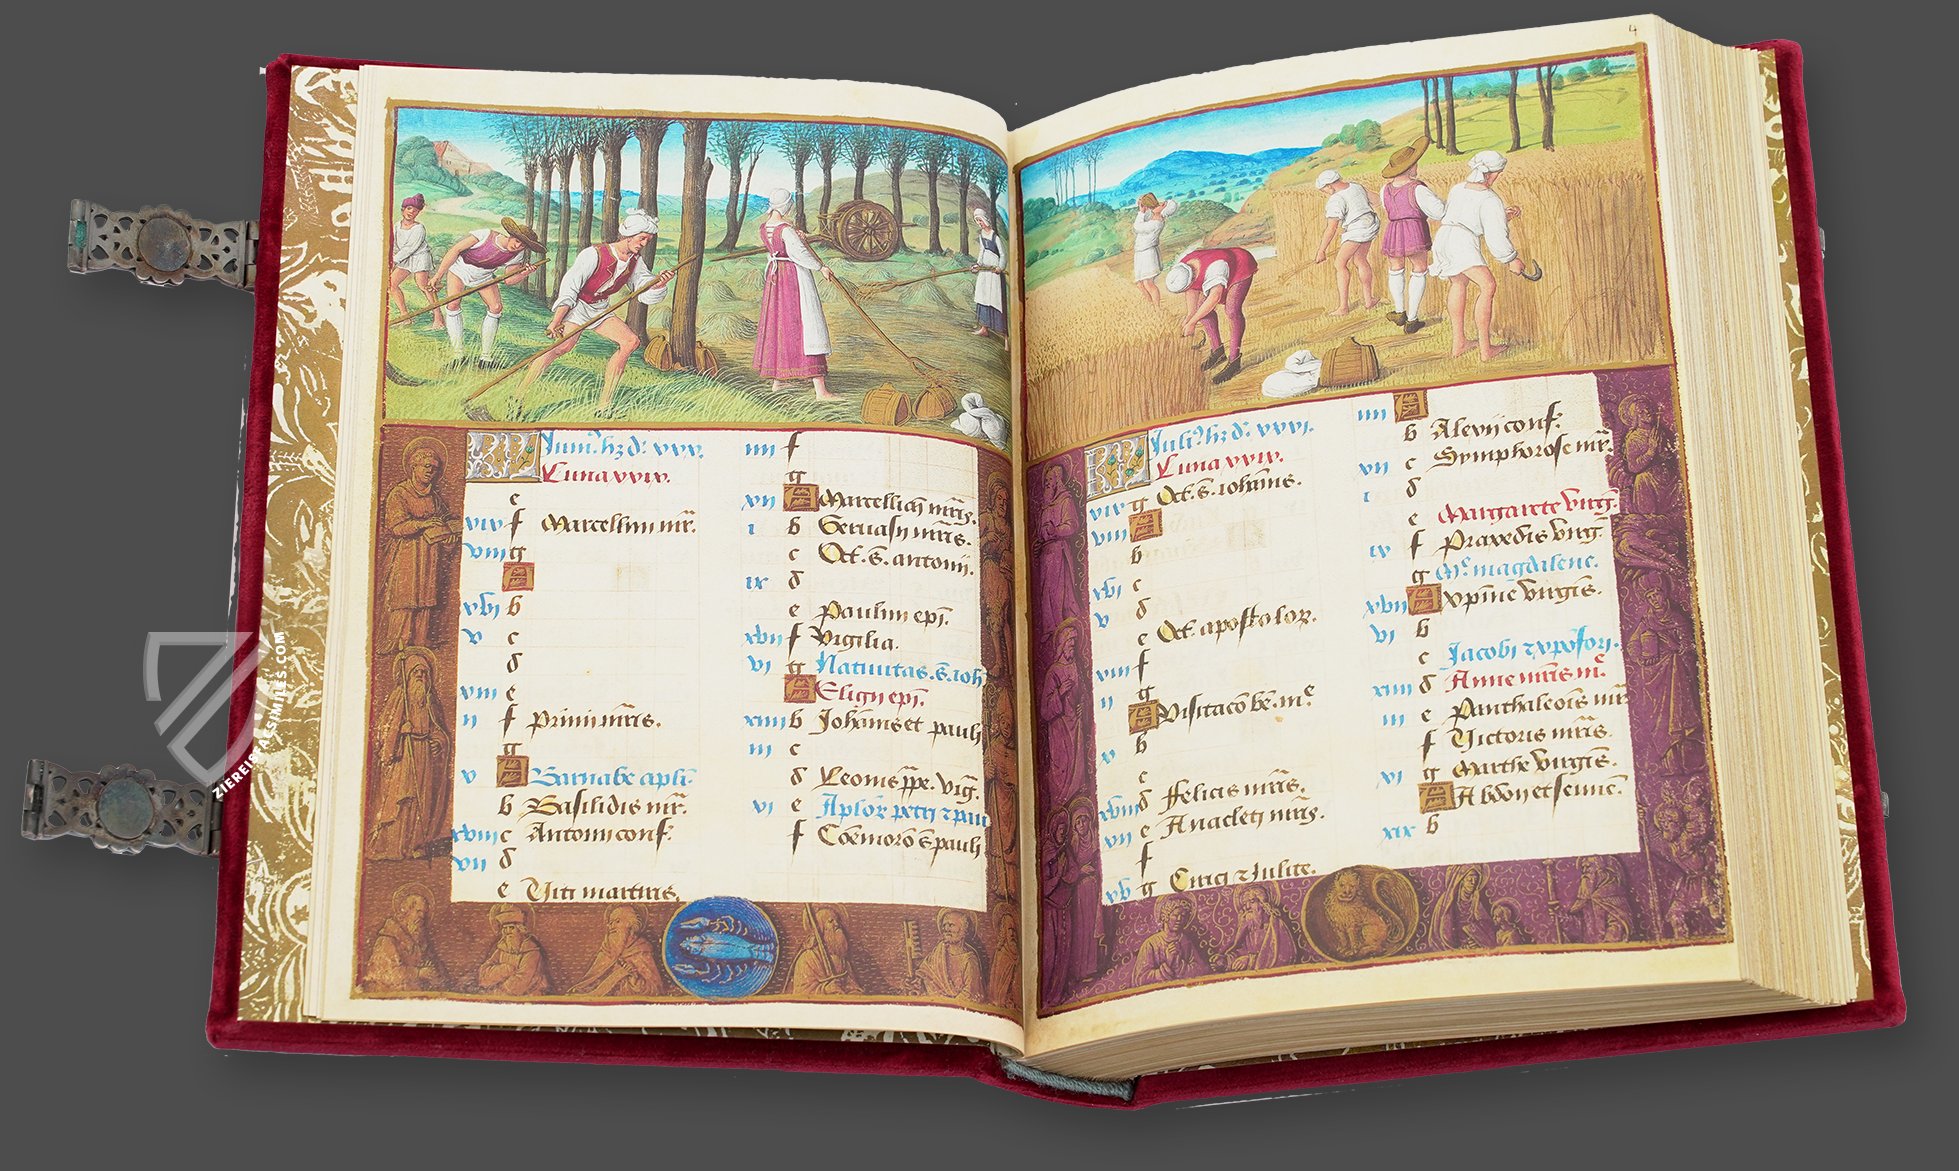 KL Juni⁹ hz d. xxx.
Luna xxix.
e
xix f Marcellini mr̃.
viii g
A
xvi b
v c
d
xiii e
ii f Primi mr̃is.
g
x A Barnabe apl̃i.
b Basilidis mr̃.
xviii c Antonii conf.
vii d
e Viti martiris.
iiii f
g
xii A Marcelliani mr̃is.
i b Gervasii mr̃is.
c Oct. s. antonii.
ix d
e Paulini ep̃i.
xvii f Vigilia.
vi g Nativitas. s. ioh
A Eligii ep̃i.
xiiii b Johãnis et pauli
iii c
d Leonis pp̃e. vig̃.
xi e Apl̃oꝝ petri ⁊ pau
f Cõemoro s̃ pauli
KL Juli⁹ hz d. xxxi.
Luna xxix.
xix g Oct. s. iohãnis.
viii A
b
xvi c
v d
e Oct. apostoloꝝ.
xiii f
ii g
A Visitacõ be. m̃e
x b
c
xviii d Felicis mr̃is.
vii e Anacleti mr̃is.
f
xv g Cirici ⁊ Iulite.
iiii A
b Alexii conf.
xii c Symphorose mr̃.
i d
e Margarete virg̃.
ix f Praxedis virg̃.
g M̃e magdalene.
xvii A Xp̃ine virg̃is.
vi b
c Jacobi ⁊ xp̃ofori.
xiiii d Anne mr̃is m̃e
iii e Panthaleonis mr̃
f Victoris mr̃is.
xi g Marthe virgis.
A Abdon et sennc̃.
xix b
ZIEREIS FACSIMILES.COM